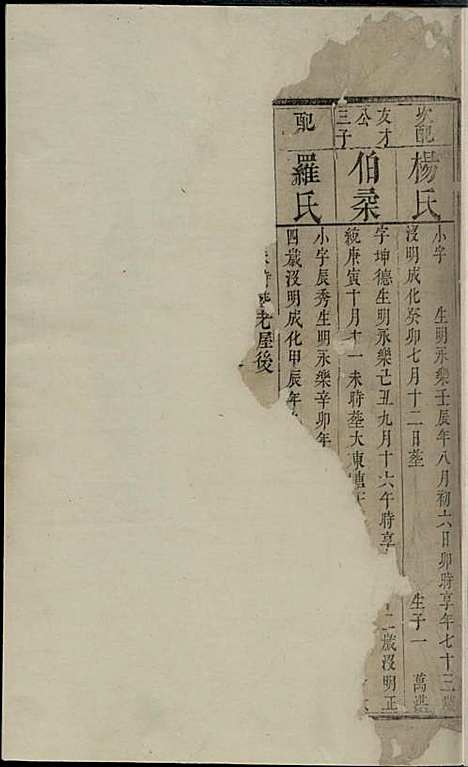 次配
楊氏
小字 生明永樂壬辰年八月初六日卯時享年七十三歲
沒明成化癸卯七月十二日塟 生子一 萬
友才公三子
伯桒
字坤德生明永樂亡丑九月十六午時享 二歲沒明正
統庚寅十月十一未時塟大東
配
羅氏
小字辰秀生明永樂辛卯年
四歲沒明成化甲辰年
老屋後